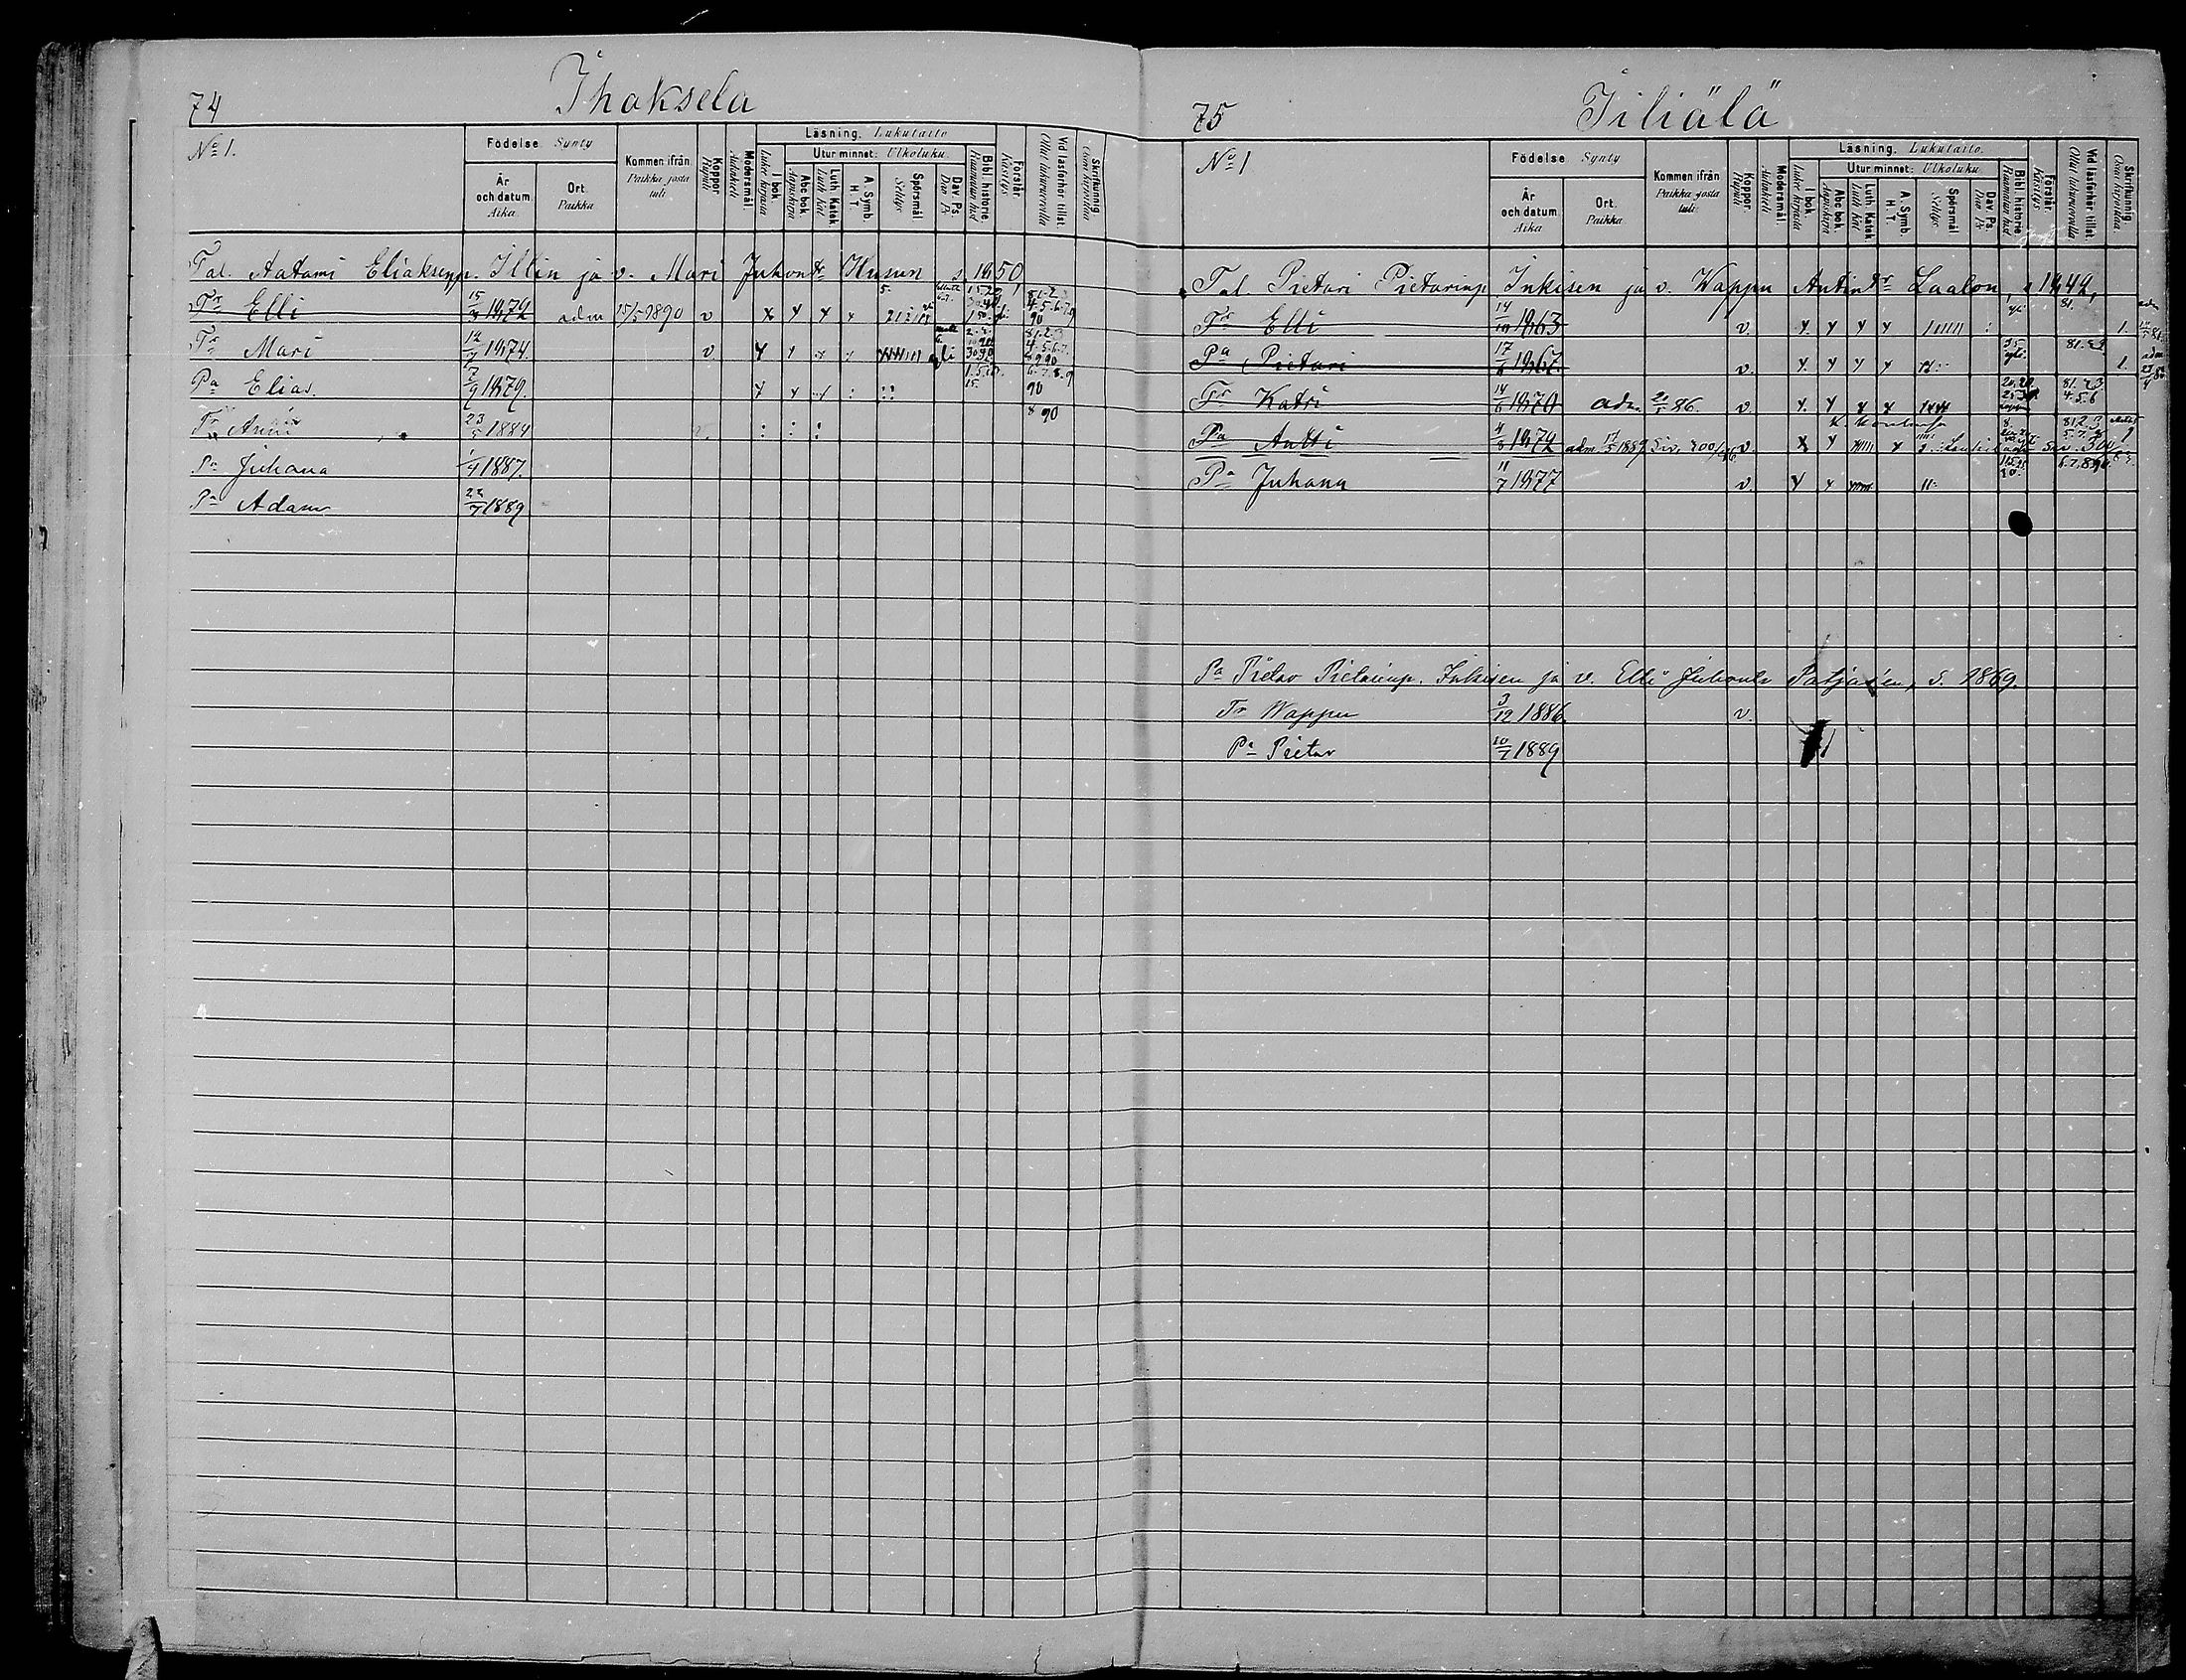 74
Ihaksela
No 1.
Födelse Synty
År och datum Aika
Ort. Paikka
Kommen ifrån Paikka josta tuli
Koppor. Rupuli
Modersmål. Äidinkieli
Läsning. Lukutaito
I bok. Lukee kirjasta
Utur minnet: Ulkoluku.
Abc bok. Aapiskirja
Luth. Katek. Luth. Kat
A. Symb. H. T.
Spörsmål Selitys
Dav. Ps. Dav. Ps.
Bibl. historie. Raamatun hist.
Förstår. Käsitys
Vid läsförhör tillst. Ollut lukuvuorolla
Skrifkunnig. Osaa kirjoittaa
Tal. Aatami Eliaksenp. Illin ja v. Mari Juhont. Husun s. 1850,
Tr Elli 15/3 1872 adm 15/5 1890 v x x x x
Tr Mari 14/7 1874. v
Pa Elias. 7/9 1879. 90
Tr Anni 23/5 1884 8 90
Pa Juhana 1/4 1887.
Pa Adam 23/7 1889
75
Iiliälä
No 1
Födelse Synty
År och datum Aika
Ort. Paikka
Kommen ifrån Paikka josta tuli
Koppor. Rupuli
Modersmål. Äidinkieli
Läsning. Lukutaito.
I bok. Lukee kirjasta
Utur minnet: Ulkoluku
Abc bok. Aapiskirja
Luth. Katek. Luth. Kat
A. Symb. H. T.
Spörsmål Selitys
Dav. Ps. Dav. Ps.
Bibl. historie. Raamatun hist.
Förstår. Käsitys
Vid läsförhör tillst. Ollut lukuvuorolla
Skrifkunnig. Osaa kirjoittaa
Tal. Pietari Pietarinp Inkisen ja v. Wappu Antint. Laalon, s 1842,
Tr Elli 14/10 1863 v. 81. 1.
Pa Pietari 17/6 1867. v. 1.
Tr Katri 14/6 1870 adm. 21/5 86. v. 81. 2.3 4.5.6
Pa Antti 4/8 1872 adm 17/5 1889 v.
Pa Juhana 11/7 1877 v.
Pa Pietar Pietarinp. Inkisen ja v. Elli Juhont. Patjasen, s. 1869.
Tr Wappu 3/12 1886. v.
Pa Pietar 10/7 1889